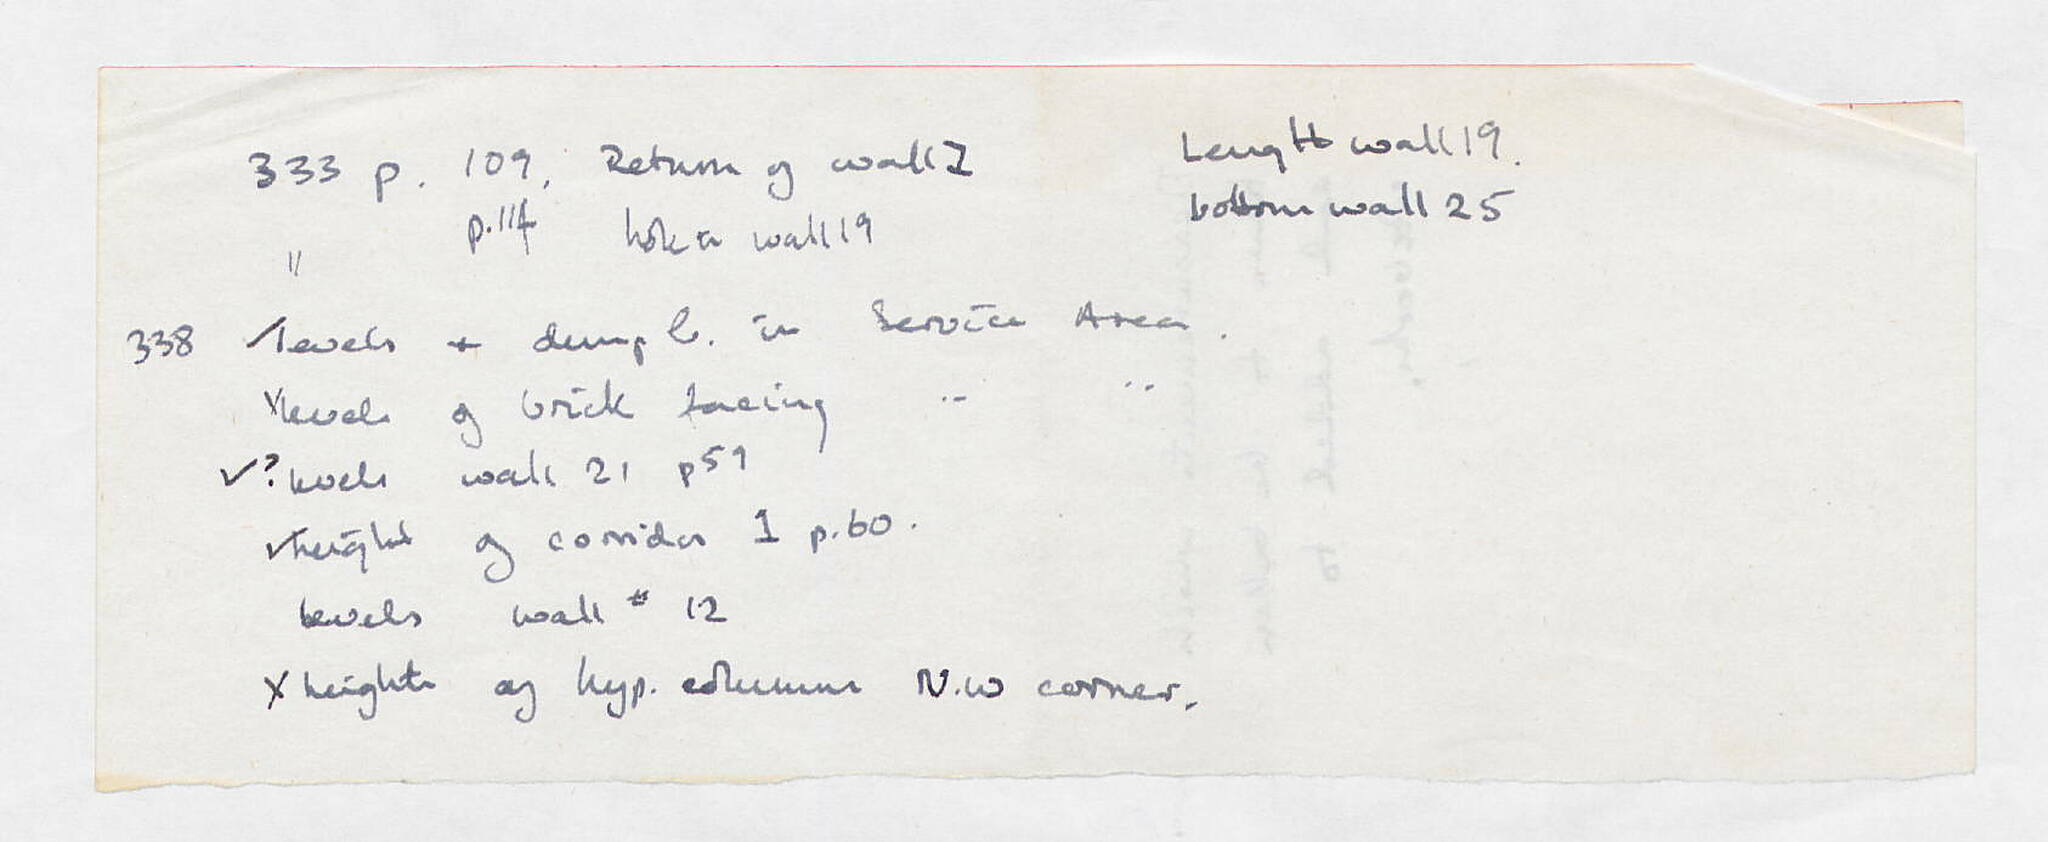 333 p. 109. Return of wall I
" p.114 hole in wall 19
Length wall 19.
bottom wall 25
338 ✓ levels + dump b. in Service Area.
x levels of brick facing " "
✓? levels wall 21 p 59
✓ height of corridor 1 p.60.
levels wall 12
x heights of hyp. columns N.W corner.